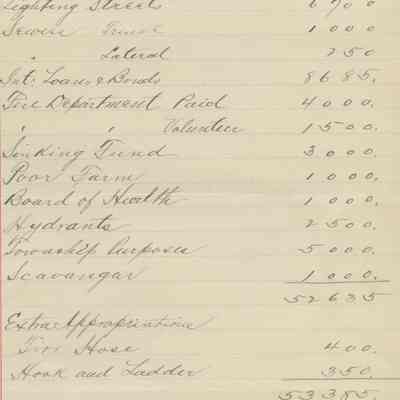 Lighting Streets 6700
Sewers Trunk 1000
" Lateral 250
Int: Loans & Bonds 8685.
Fire Department Paid 4000.
" " Volunteer 1500.
Sinking Fund 3000.
Poor Farm 1000.
Board of Health 1000.
Hydrants 2500.
Township Purposes 5000.
Scavangar 1000.
52635
Extra Appropriations
For Hose 400.
Hook and Ladder 350.
53385.